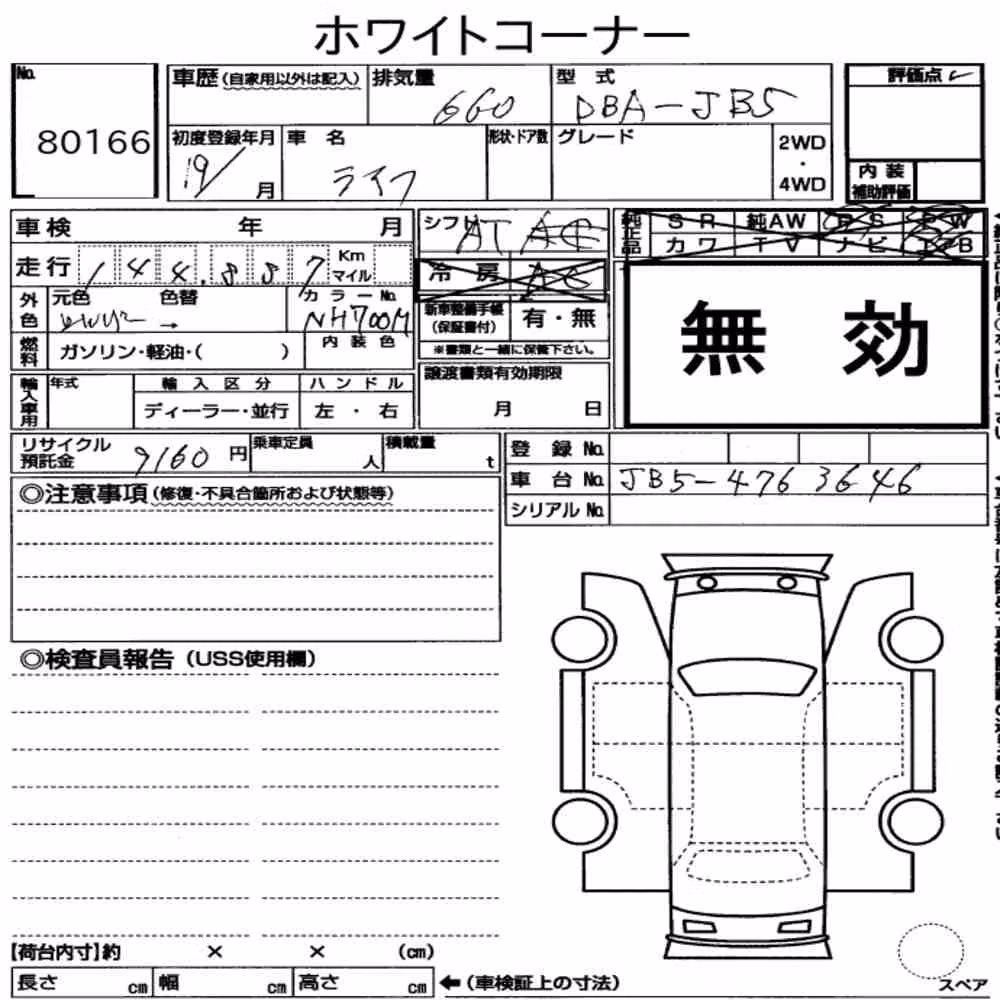 ホワイトコーナー
No. 80166
車歴(自家用以外は記入) 排気量 660 型式 DBA-JB5
評価点
初度登録年月 19/ 月 車名 ライフ 形状・ドア数 グレード 2WD・4WD
内装補助評価
車検 年 月 シフト AT AC
純正品 SR 純AW PS PW
カワ TV ナビ
走行 144,887 Km マイル
冷房 AC
外色 元色 色替 → カラーNo. NH700M
新車整備手帳(保証書付) 有・無
※書類と一緒に保管下さい。
無効
燃料 ガソリン・軽油・( ) 内装色
輸入車用 年式 輸入区分 ハンドル
ディーラー・並行 左・右
譲渡書類有効期限
月 日
リサイクル預託金 9160 円 乗車定員 人 積載量 t
登録No.
車台No. JB5-4763646
シリアルNo.
◎注意事項(修復・不具合箇所および状態等)
◎検査員報告(USS使用欄)
【荷台内寸】約 × × (cm)
長さ cm 幅 cm 高さ cm ←(車検証上の寸法)
スペア